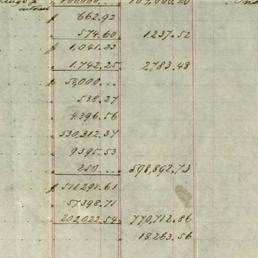 662.92
574.60 1237.52
1,041.23
1,742.25 2783.48
50,000...
538.27
4396.56
530,312.37
9395.53
250... 598,892.73
511291.61
57398.71
202,022.54 770,712.86
18263.56